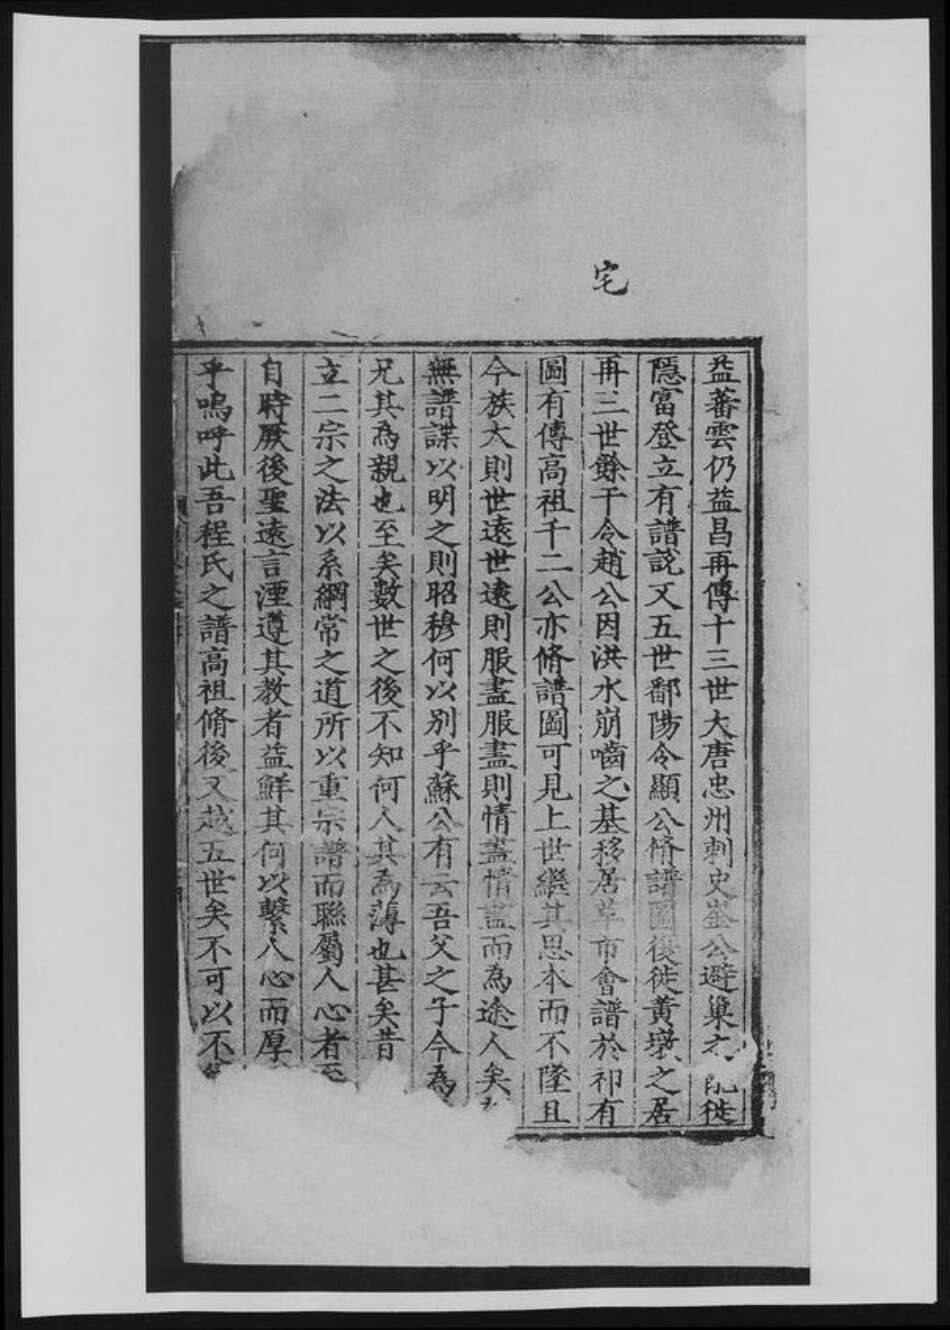 宅
益蕃雲仍益昌再傳十三世大唐忠州刺史崟公避巢之亂徙
隱富登立有譜說又五世鄱陽令顯公脩譜圖復徙黃墩之居
再三世餘干令趙公因洪水崩嚙之基移居羊市會譜於祁有
圖有傳高祖千二公亦脩譜圖可見上世繼其思本而不墜且
今族大則世遠世遠則服盡服盡則情盡情盡而為途人矣
無譜諜以明之則昭穆何以別乎蘇公有云吾父之子今為
兄其為親也至矣數世之後不知何人其為薄也甚矣昔
立二宗之法以系綱常之道所以重宗譜而聯屬人心者至
自時厥後聖遠言湮遵其教者益鮮其何以繫人心而厚
乎嗚呼此吾程氏之譜高祖脩後又越五世矣不可以不